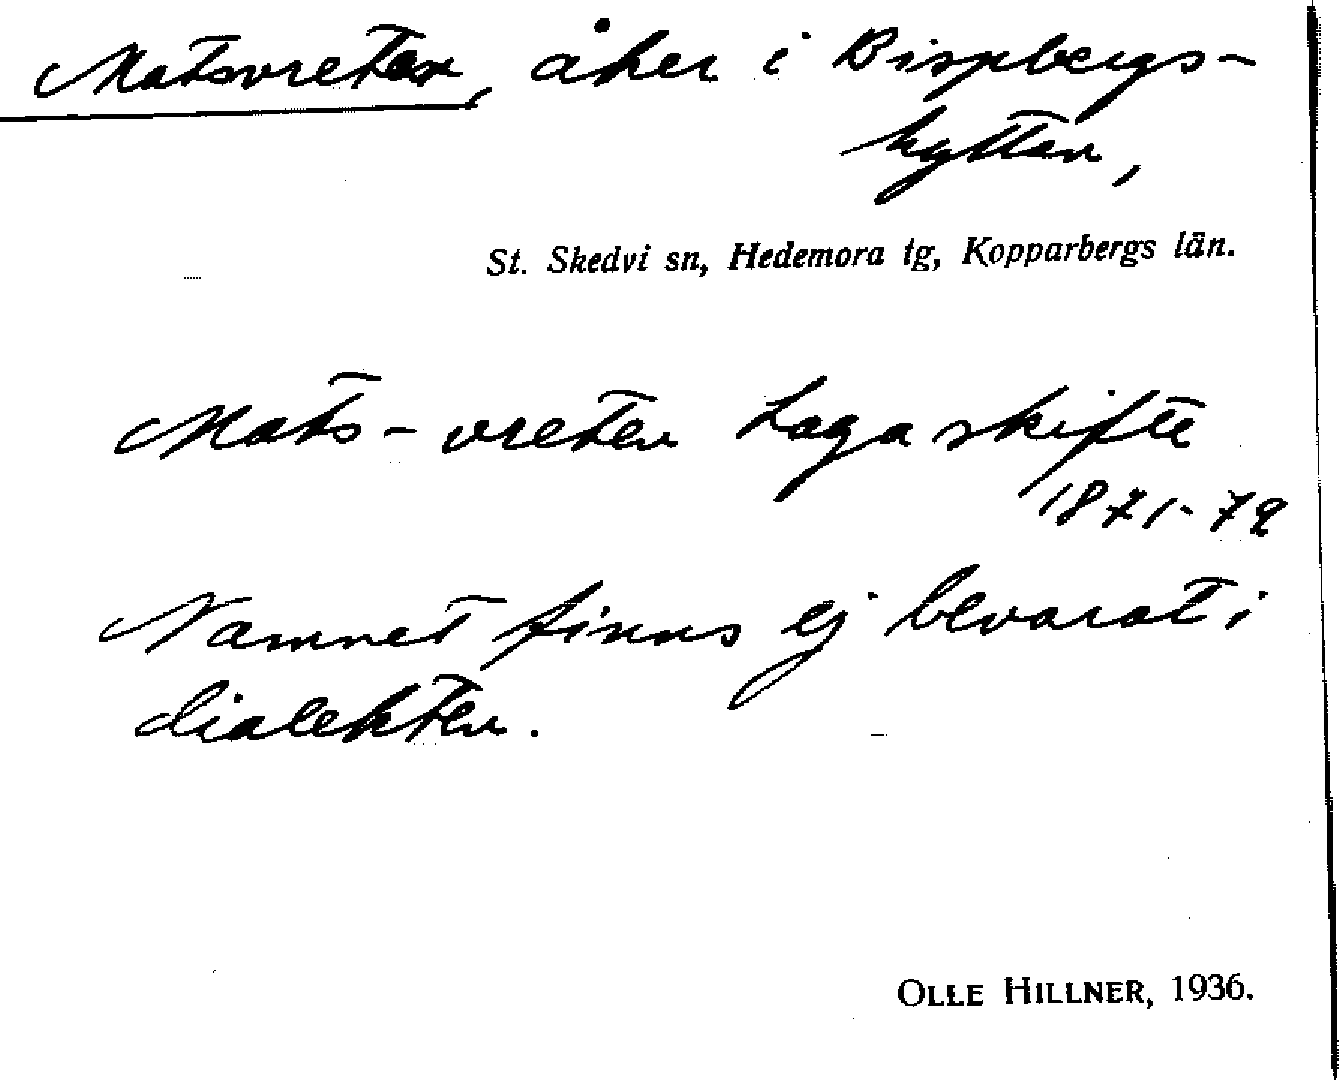 Matsvreten, åker i Bispbergs-
hyttan,
St. Skedvi sn, Hedemora tg, Kopparbergs län.
Mats-vreten Laga skifte
1871-72
Namnet finns ej bevarat i
dialekten.
OLLE HILLNER, 1936.